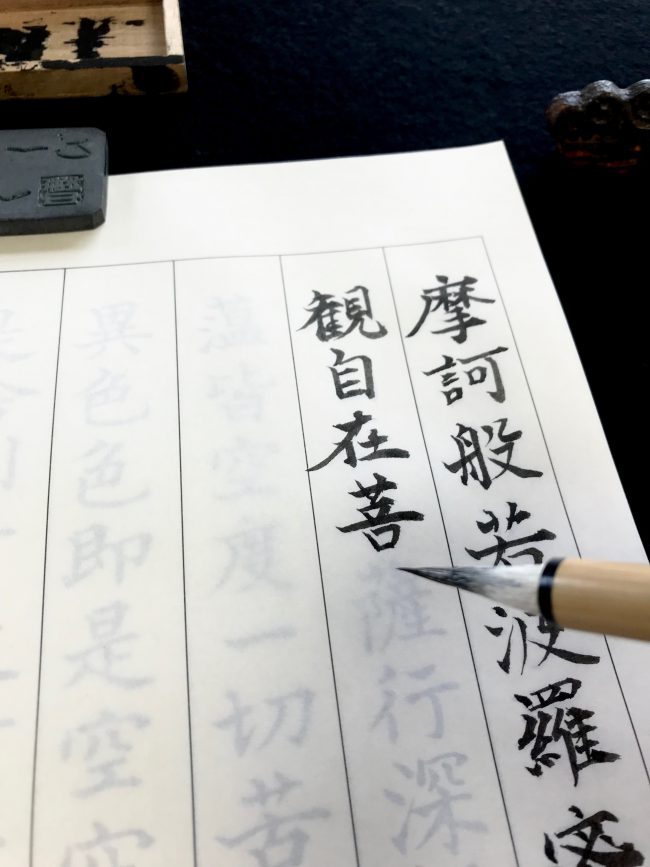 摩訶般若波羅蜜
観自在菩薩行深
蘊皆空度一切苦
異色色即是空空